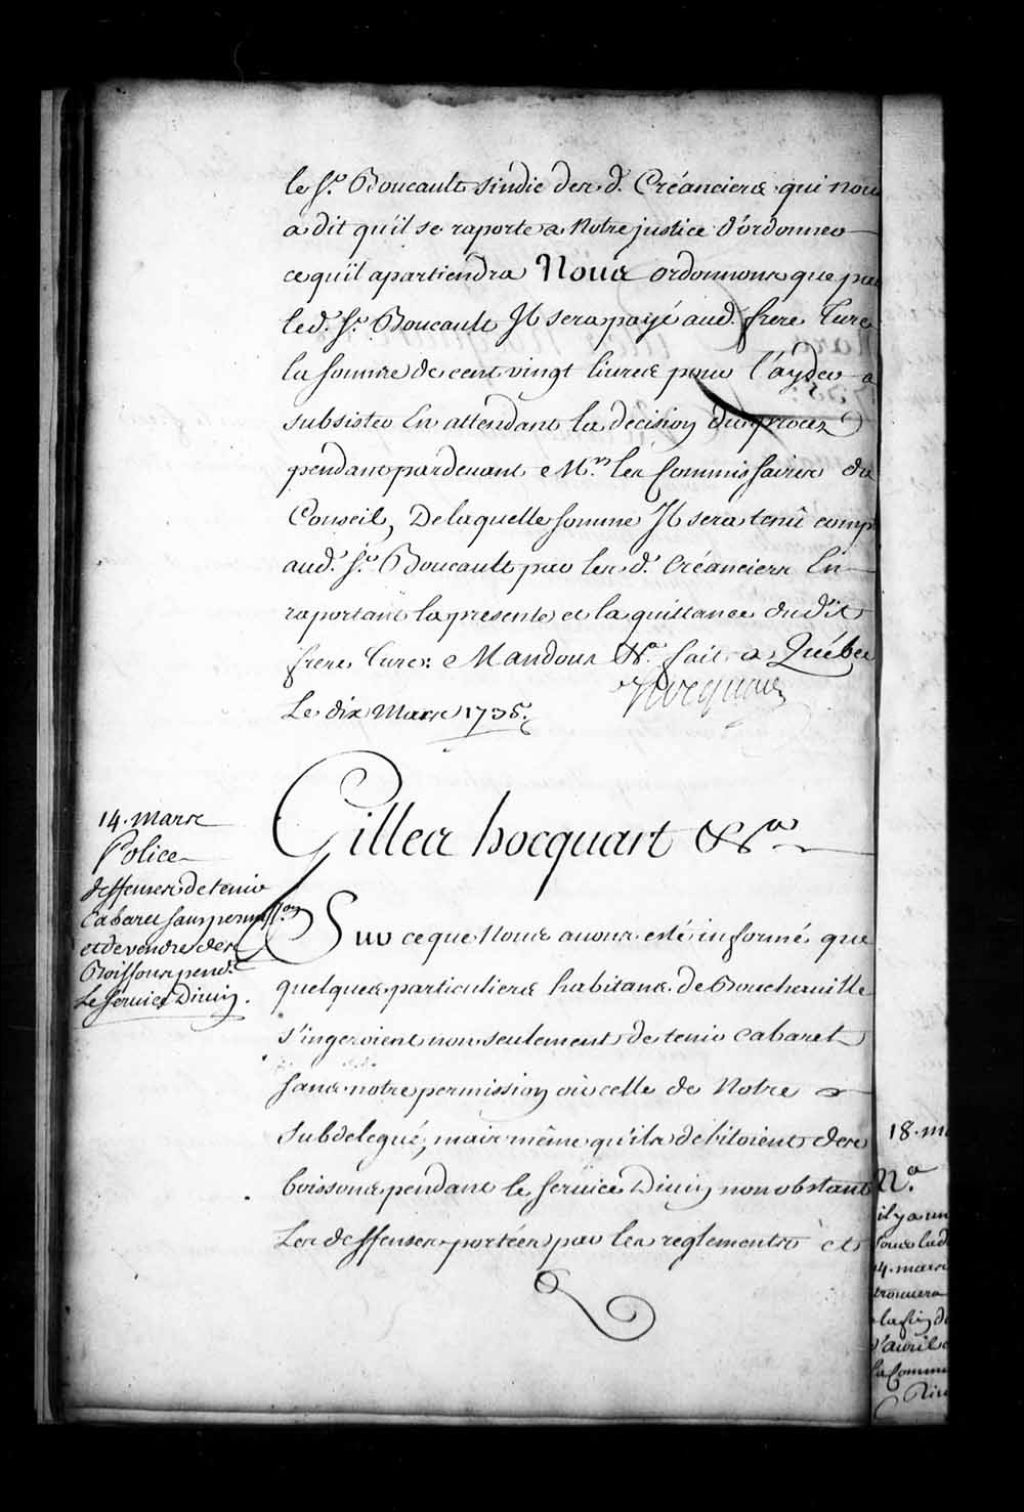 le S.r Boucault sindic des d. Créanciers qui nous
a dit qu'il se raporte a Notre justice d'ordonner
ce qu'il apartiendra Nous ordonnons que par
le d. S.r Boucault Il sera payé aud. frere Turc
la somme de cent vingt livres pour l'ayder a
subsister En attendant la decision du procez
pendant pardevant M.rs les Commissaires du
Conseil, De laquelle somme Il sera tenû compte
aud. S.r Boucault par les d. Créanciers En
raportant la presente et la quittance dudit
frere Turc: Mandons &.a fait a Québec
Le dix Mars 1735.
Hocquart
14. Mars
Police
deffenses de tenir
Cabaret sans permiss.on
et de vendre des
Boissons pend.t
Le service Divin.
Gilles hocquart &.a
Sur ce que Nous avons esté informé que
quelques particuliers habitans de Boucherville
s'ingeroient non seulement de tenir cabaret
sans notre permission ou celle de Notre
Subdelegué, mais même qu'ils debitoient des
boissons pendant le service Divin nonobstant
Les deffenses portées par les reglements et
18. m
N.a
il y a un
sous la d
14. mars
trouvera
la fin d
d'avril
la Comm